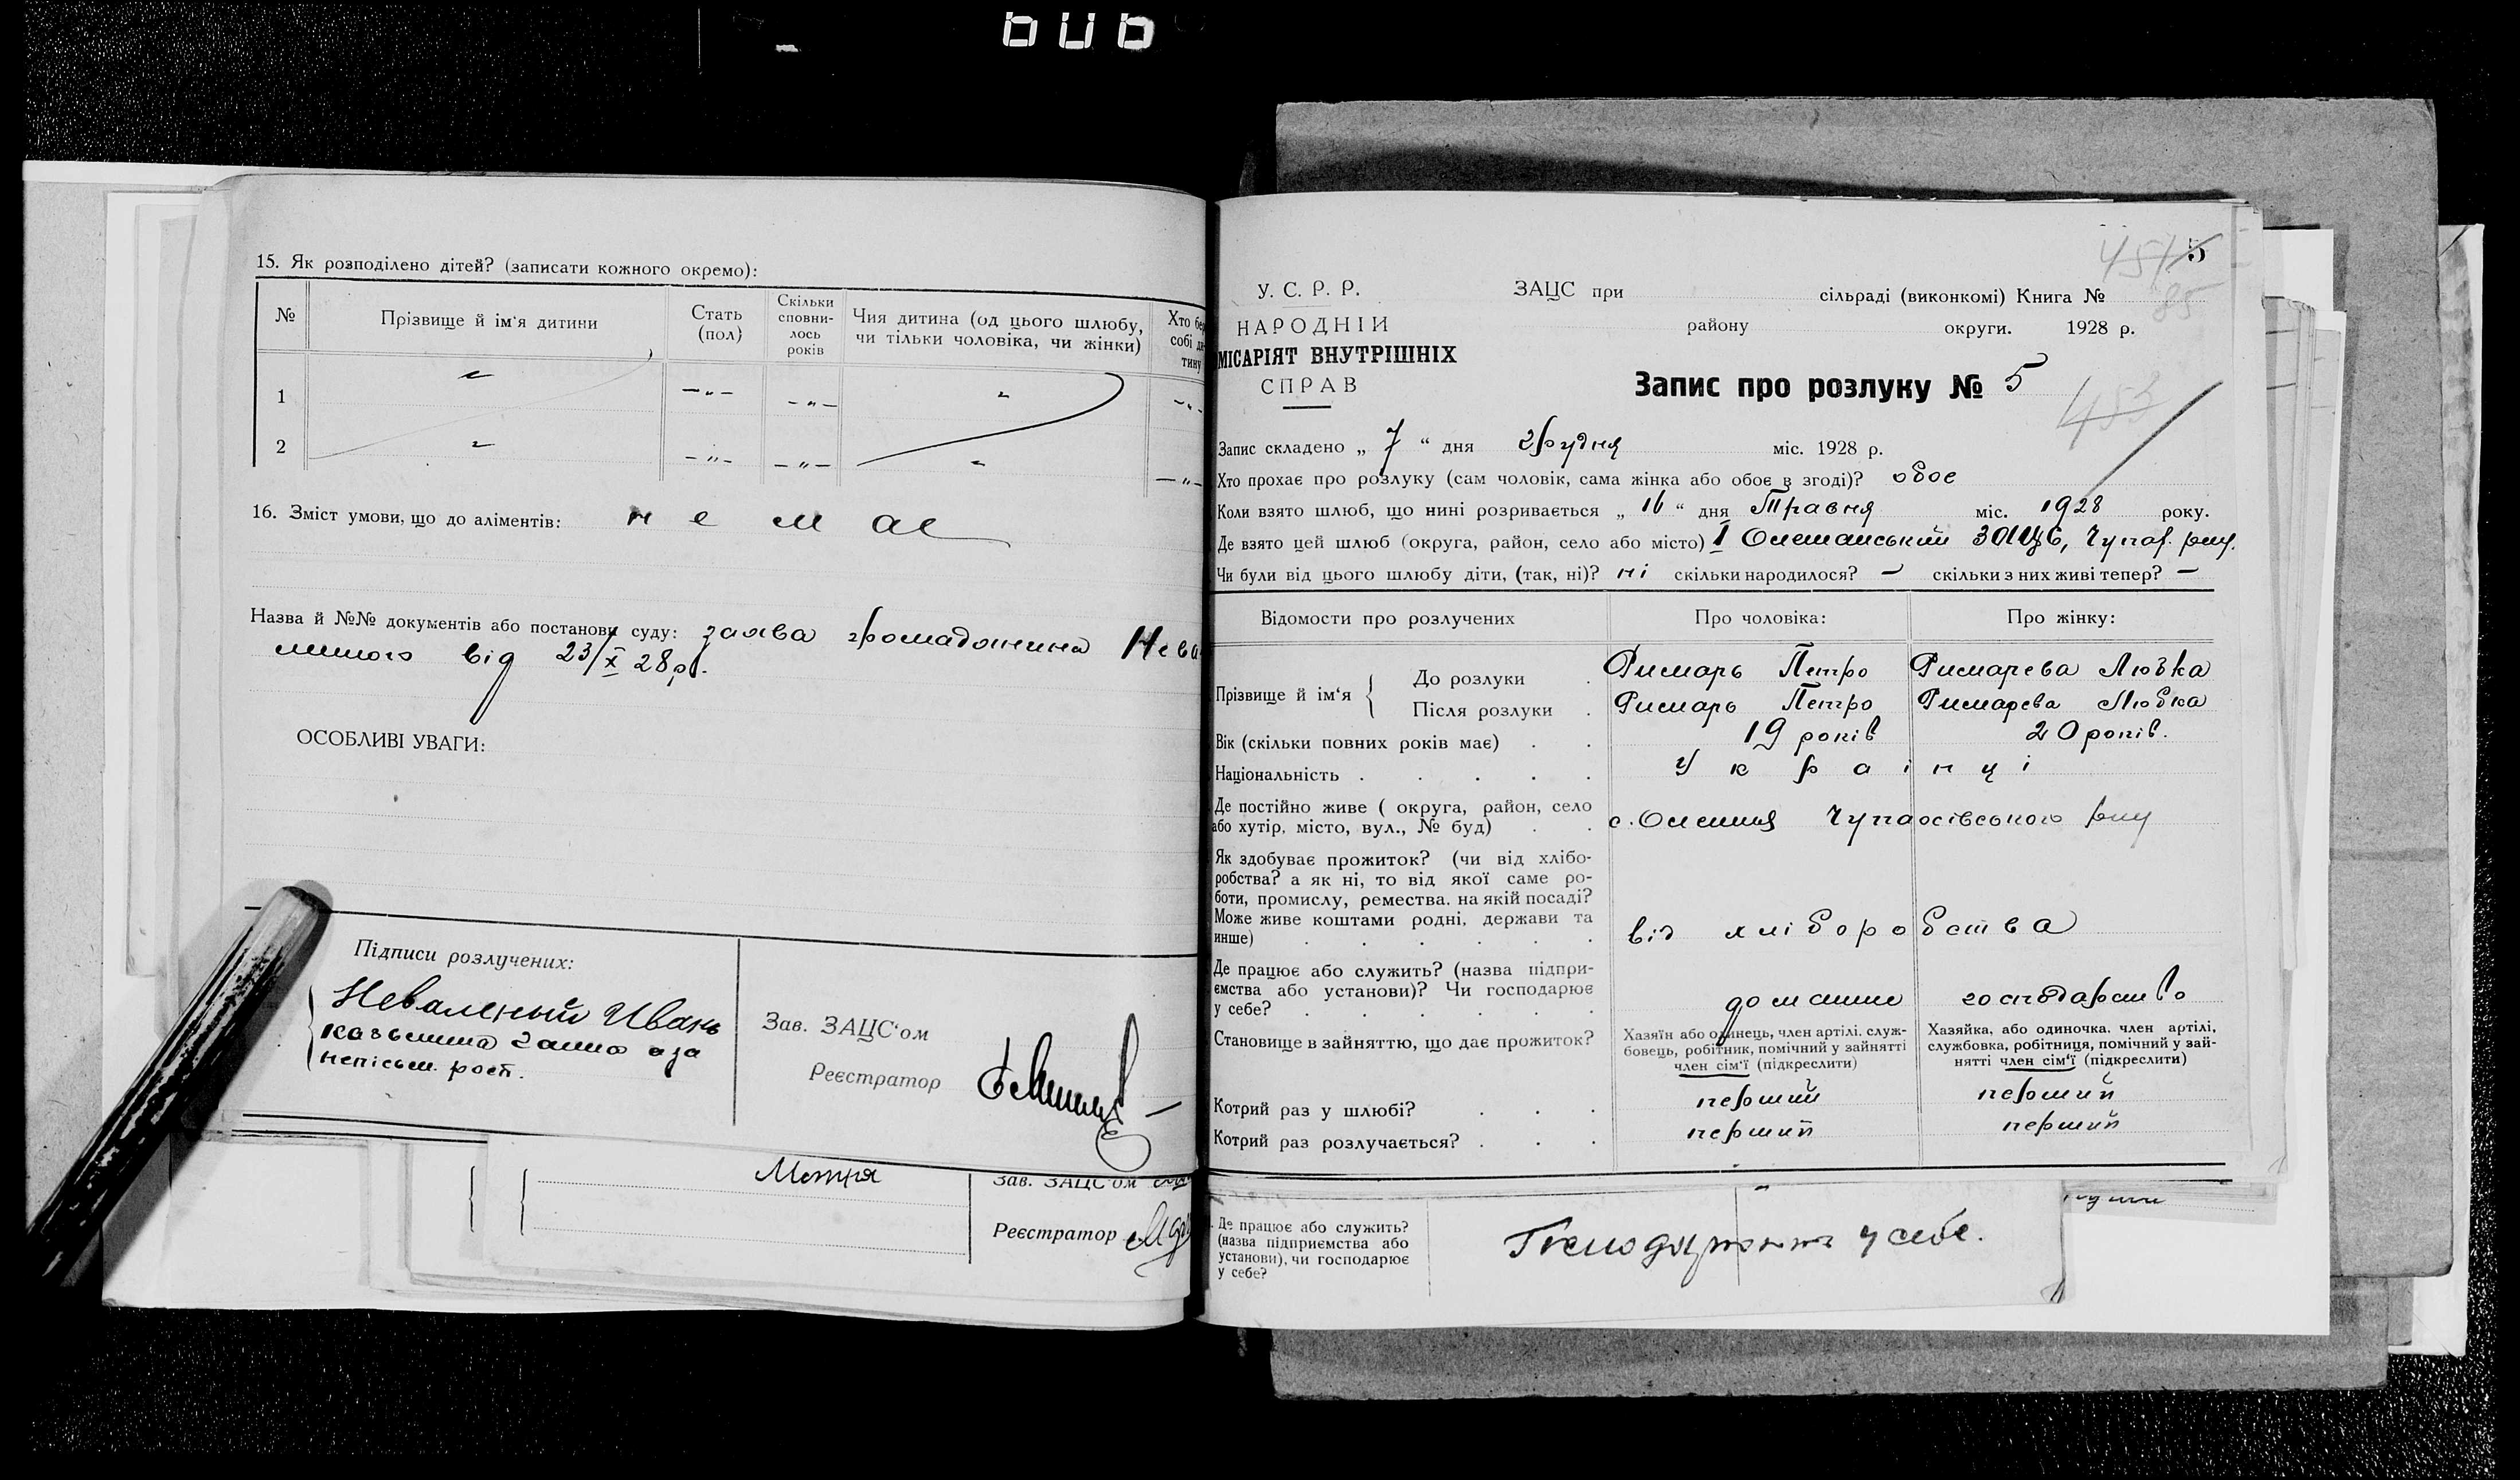 15. Як розподілено дітей? (записати кожного окремо):
№ Прізвище й ім'я дитини Стать (пол) Скільки сповнилось років Чия дитина (од цього шлюбу, чи тільки чоловіка, чи жінки) Хто бер собі ди тину
1 — „ — — „ — „ — „ —
2 — „ — — „ — „ — „ —
16. Зміст умови, що до аліментів: немає
Назва й №№ документів або постанови суду: заява громадонина Нева
від 23/X 28 р.
ОСОБЛИВІ УВАГИ:
Підписи розлучених:
Невалений Иванъ
непісьм. росп.
Зав. ЗАЦС'ом
Реєстратор
Мотря
Зав. ЗАЦС'ом
Реєстратор
5
451
85
У. С. Р. Р.
НАРОДНІЙ
МІСАРІЯТ ВНУТРІШНІХ
СПРАВ
ЗАЦС при сільраді (виконкомі) Книга №
району округи. 1928 р.
Запис про розлуку № 5
453
Запис складено „ 7 “ дня Грудня міс. 1928 р.
Хто прохає про розлуку (сам чоловік, сама жінка або обоє в згоді)? обое
Коли взято шлюб, що нині розривається „ 16 “ дня Травня міс. 1928 року.
Де взято цей шлюб (округа, район, село або місто) I ЗАЦС,
Чи були від цього шлюбу діти, (так, ні)? ні скільки народилося? — скільки з них живі тепер? —
Відомости про розлучених Про чоловіка: Про жінку:
Прізвище й ім'я { До розлуки . Римарь Петро Римарева Любка
Після розлуки . Римарь Петро Римарева Любка
Вік (скільки повних років має) . . 19 років 20 років.
Національність . . . . . Українці
Де постійно живе ( округа, район, село
або хутір, місто, вул., № буд) . . с.
Як здобуває прожиток? (чи від хлібо-
робства? а як ні, то від якої саме ро-
боти, промислу, ремества, на якій посаді?
Може живе коштами родні, держави та
инше) . . . . . . від хліборобства
Де працює або служить? (назва підпри-
ємства або установи)? Чи господарює
у себе? . . . . . . домашне господарство
Становище в зайняттю, що дає прожиток?
Хазяїн або одинець, член артілі, служ-
бовець, робітник, помічний у зайнятті
член сім'ї (підкреслити)
Хазяйка, або одиночка, член артілі,
службовка, робітниця, помічний у зай-
нятті член сім'ї (підкреслити)
Котрий раз у шлюбі? . . . перший перший
Котрий раз розлучається? . . . перший перший
Де працює або служить?
(назва підприємства або
установи), чи господарює
у себе?
у себе.